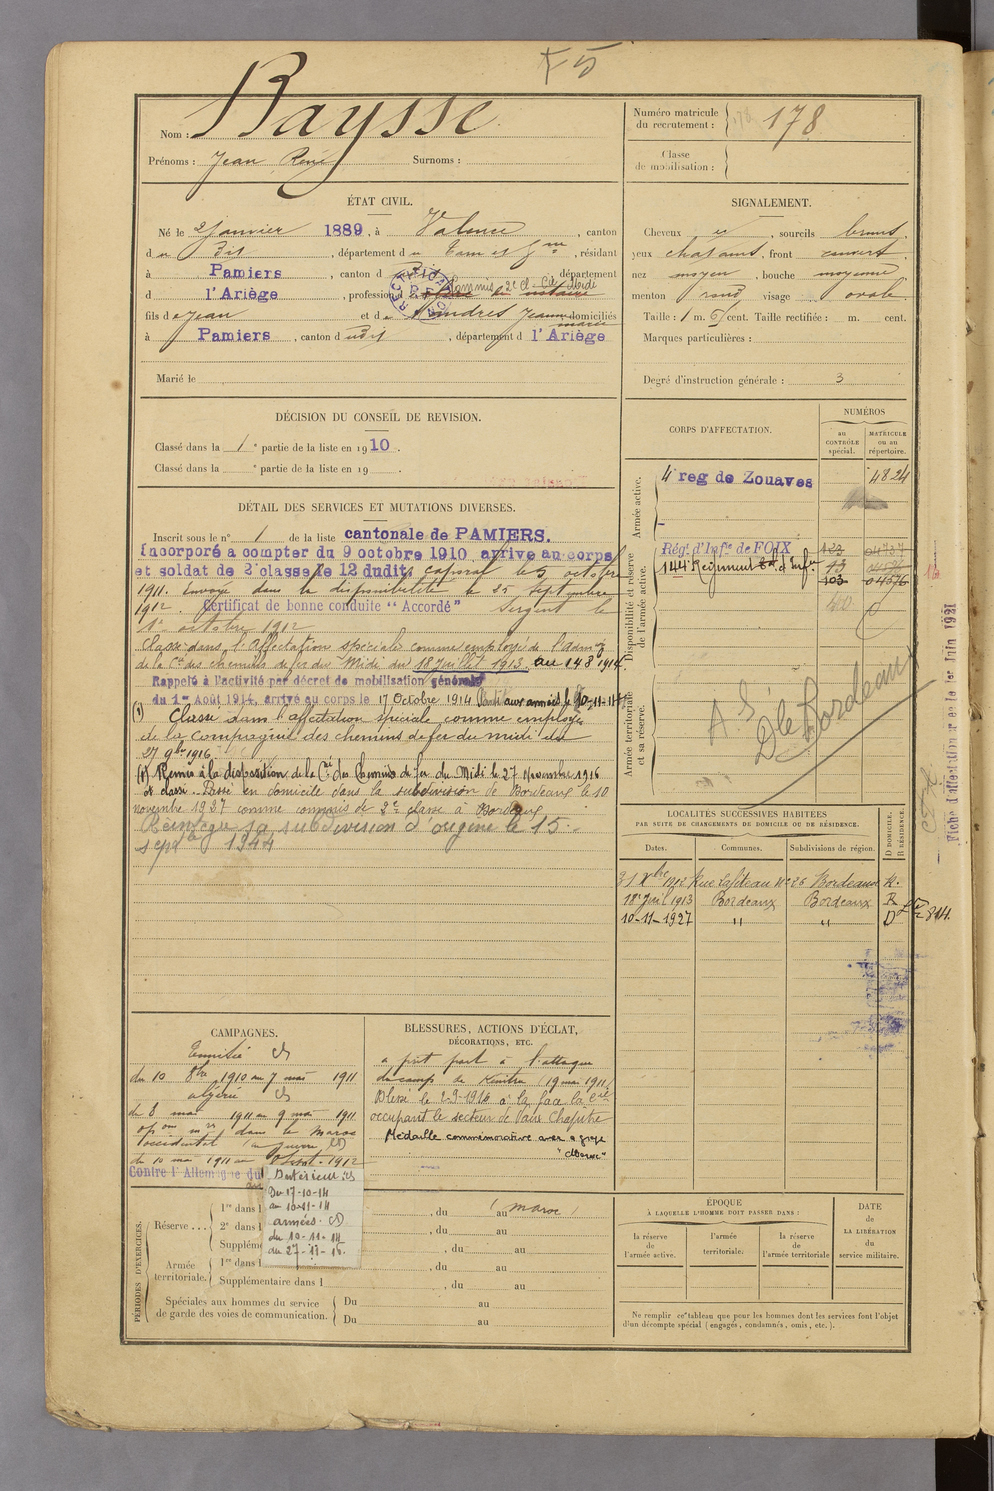 K5
Nom : Baysse
Prénoms : Jean René Surnoms :
Numéro matricule du recrutement : 178
Classe de mobilisation :
ÉTAT CIVIL.
Né le 2 janvier 1889, à Valence, canton
d u dit, département d u Tarn et Gne, résidant
à Pamiers, canton d udit, département
d l'Ariège, profession d Commis 2e Cl. Cie Midi
clerc de notaire
fils de Jean et de Andres Jeanne domiciliés
marie
à Pamiers, canton d udit, département d l'Ariège
Marié le
SIGNALEMENT.
Cheveux et, sourcils bruns.
yeux chatains, front couvert
nez moyen, bouche moyenne
menton rond visage ovale
Taille : 1 m. cent. Taille rectifiée : m. cent.
Marques particulières :
Degré d'instruction générale : 3
DÉCISION DU CONSEIL DE REVISION.
Classé dans la 1e partie de la liste en 1910.
Classé dans la e partie de la liste en 19 .
CORPS D'AFFECTATION.
NUMÉROS
au CONTRÔLE spécial.
MATRICULE ou au répertoire.
Armée active.
4e reg de Zouaves 4824
Disponibilité et réserve de l'armée active.
Régt d'Infie de FOIX
144e Régiment d'Infie
103 04576
Armée territoriale et sa réserve.
A.S. Dle Bordeaux
DÉTAIL DES SERVICES ET MUTATIONS DIVERSES.
Inscrit sous le n° 1 de la liste cantonale de PAMIERS.
Incorporé a compter du 9 octobre 1910, arrive au corps
et soldat de 2e classe le 12 dudit, caporal le 5 octobre
1911. Envoyé dans la disponibilité le 25 Septembre
1912. Certificat de bonne conduite "Accordé" Sergent le
1er octobre 1912
Classé dans l'Affectation spéciale comme employé de l'admon
de la Cie des chemins de fer du Midi du 18 juillet 1913. au 14 8 1914.
Rappelé à l'activité par décret de mobilisation générale
du 1er Août 1914, arrivé au corps le 17 Octobre 1914 Parti aux armées le 10-11-14
(1) Classé dans l'affectation spéciale comme employé
de la Compagnie des chemins de fer du midi du
27 9bre 1916
(1) Remis à la disposition de la Cie des Chemins de fer du Midi le 27 Novembre 1916
et classé. Passé en domicile dans la subdivision de Bordeaux le 10
novembre 1927 comme commis de 2e classe à Bordeaux
Réintègre sa subdivision d'origine le 15
sept 1944
LOCALITÉS SUCCESSIVES HABITÉES
PAR SUITE DE CHANGEMENTS DE DOMICILE OU DE RÉSIDENCE.
Dates. Communes. Subdivisions de région. D DOMICILE. R RÉSIDENCE.
31 Xbre 1912 Rue Lafiteau No 26 Bordeaux R.
18 Juil 1913 Bordeaux Bordeaux R
10-11-1927 " " D
Fiche d'affectation créée le 1er Juin 1921
CAMPAGNES.
Tunisie
du 10 8bre 1910 au 7 mai 1911
algérie
du 8 mai 1911 au 9 mai 1911
opons mres dans le Maroc
occidental (en guerre)
du 10 mai 1911 au Sept. 1912
Contre l'Allemagne du
Intérieur
Du 17-10-14
au 10-11-14
armées.
du 10-11-14
au 27-11-16
BLESSURES, ACTIONS D'ÉCLAT,
DÉCORATIONS, ETC.
a pris part à l'attaque
du camp de Kenitra (19 mai 1911)
Blessé le 2-9-1916 à la face la Cie
occupant le secteur de Vaux Chapitre
Médaille commémorative avec agrafe
"Maroc"
PÉRIODES D'EXERCICES.
Réserve...
1re dans l , du au (maroc)
2e dans l , du au
Supplémen , du au
Armée territoriale.
1re dans l , du au
Supplémentaire dans l , du au
Spéciales aux hommes du service de garde des voies de communication.
Du au
Du au
ÉPOQUE
À LAQUELLE L'HOMME DOIT PASSER DANS :
la réserve de l'armée active.
l'armée territoriale.
la réserve de l'armée territoriale
DATE de LA LIBÉRATION du service militaire.
Ne remplir ce tableau que pour les hommes dont les services font l'objet
d'un décompte spécial (engagés, condamnés, omis, etc.).